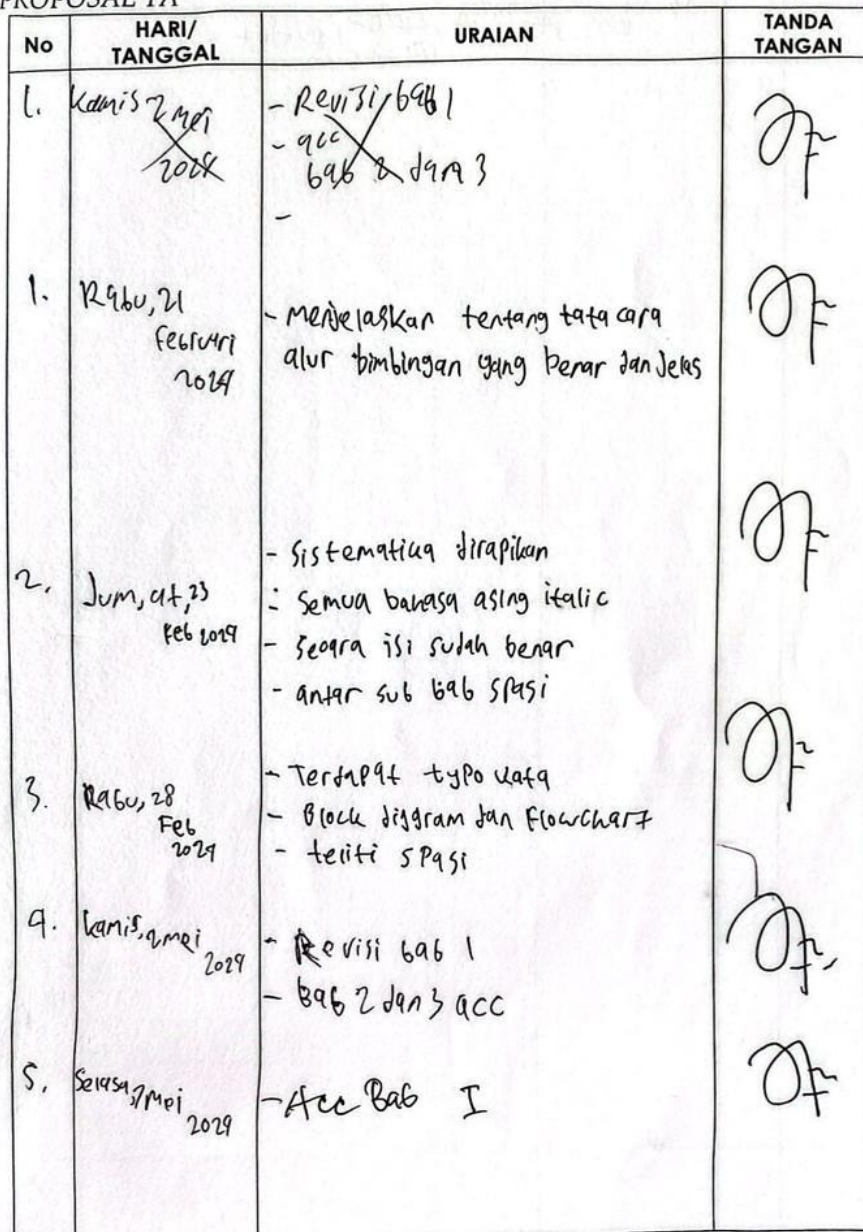 PROPOSAL TA
No
HARI/
TANGGAL
URAIAN
TANDA
TANGAN
1. Kamis 2 mei
2024
- Revisi bab 1
- acc
bab 2 dan 3
-
1. Rabu, 21
Februari
2024
- Menjelaskan tentang tata cara
alur bimbingan yang benar dan Jelas
2. Jum, at, 23
Feb 2024
- Sistematika dirapikan
- Semua bahasa asing italic
- Secara isi sudah benar
- antar sub bab spasi
3. Rabu, 28
Feb
2024
- Terdapat typo kata
- Block diagram dan Flowchart
- teliti spasi
4. Kamis, 2 mei
2024
- Revisi bab 1
- Bab 2 dan 3 acc
5. Selasa, 7 Mei
2024
- Acc Bab I